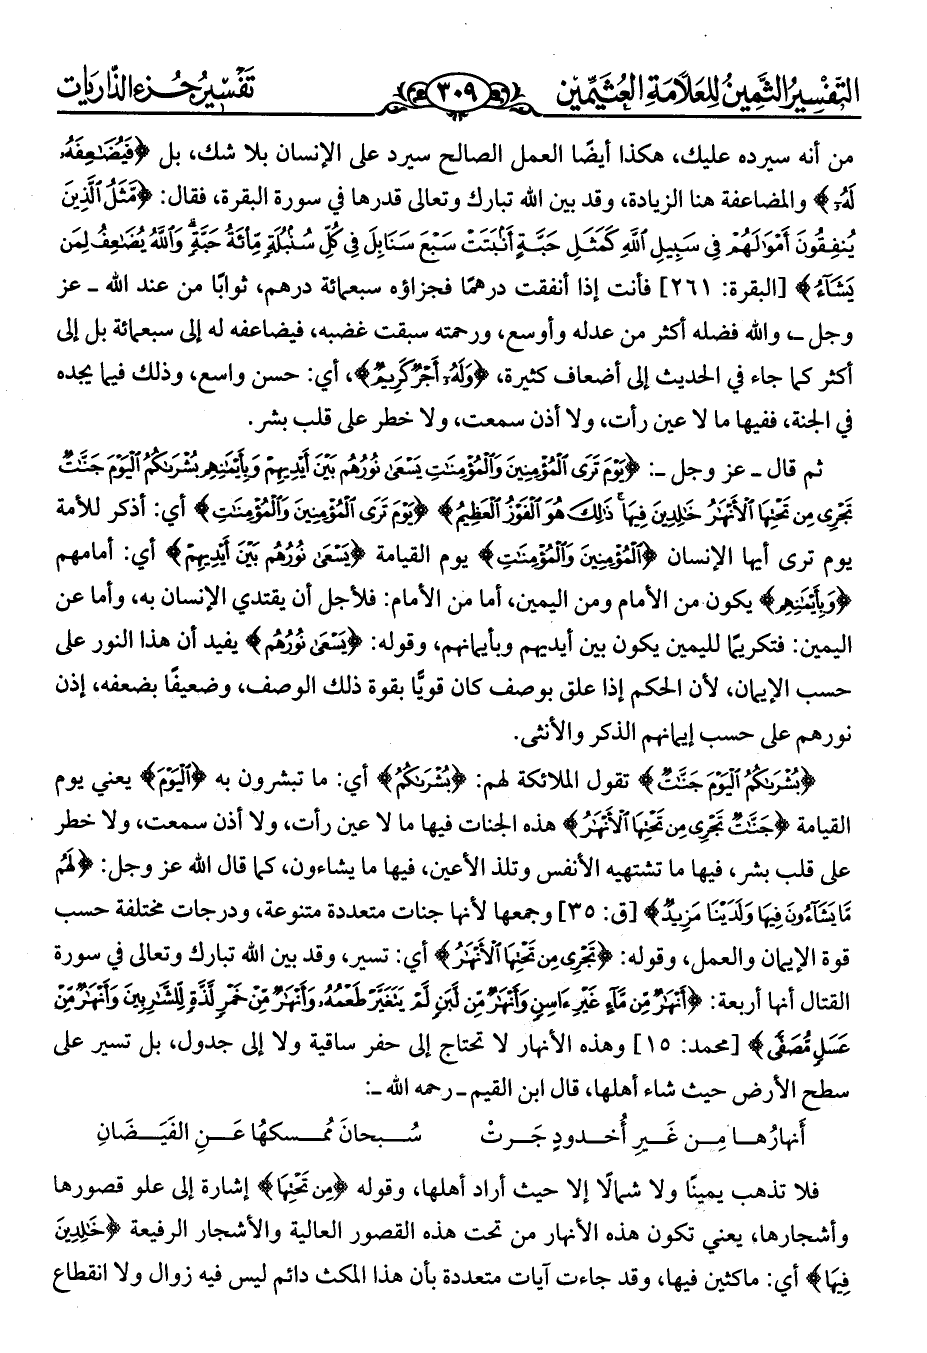 التَّفْسِيرُ الثَّمِينُ لِلعَلَّامَةِ العُثَيْمِين ٣٠٩ تَفْسِيرُ جُزءِ الذَّارِيَات
من أنه سيرده عليك، هكذا أيضًا العمل الصالح سيرد على الإنسان بلا شك، بل ﴿فَيُضَٰعِفَهُۥ
لَهُۥ﴾ والمضاعفة هنا الزيادة، وقد بين الله تبارك وتعالى قدرها في سورة البقرة، فقال: ﴿مَّثَلُ ٱلَّذِينَ
يُنفِقُونَ أَمْوَٰلَهُمْ فِى سَبِيلِ ٱللَّهِ كَمَثَلِ حَبَّةٍ أَنۢبَتَتْ سَبْعَ سَنَابِلَ فِى كُلِّ سُنۢبُلَةٍ مِّا۟ئَةُ حَبَّةٍ ۗ وَٱللَّهُ يُضَٰعِفُ لِمَن
يَشَآءُ﴾ [البقرة: ٢٦١] فأنت إذا أنفقت درهمًا فجزاؤه سبعمائة درهم، ثوابًا من عند الله ـ عز
وجل ـ، والله فضله أكثر من عدله وأوسع، ورحمته سبقت غضبه، فيضاعفه له إلى سبعمائة بل إلى
أكثر كما جاء في الحديث إلى أضعاف كثيرة، ﴿وَلَهُۥٓ أَجْرٌ كَرِيمٌ﴾، أي: حسن واسع، وذلك فيما يجده
في الجنة، ففيها ما لا عين رأت، ولا أذن سمعت، ولا خطر على قلب بشر.
ثم قال ـ عز وجل ـ: ﴿يَوْمَ تَرَى ٱلْمُؤْمِنِينَ وَٱلْمُؤْمِنَٰتِ يَسْعَىٰ نُورُهُم بَيْنَ أَيْدِيهِمْ وَبِأَيْمَٰنِهِم بُشْرَىٰكُمُ ٱلْيَوْمَ جَنَّٰتٌ
تَجْرِى مِن تَحْتِهَا ٱلْأَنْهَٰرُ خَٰلِدِينَ فِيهَا ۚ ذَٰلِكَ هُوَ ٱلْفَوْزُ ٱلْعَظِيمُ﴾ ﴿يَوْمَ تَرَى ٱلْمُؤْمِنِينَ وَٱلْمُؤْمِنَٰتِ﴾ أي: أذكر للأمة
يوم ترى أيها الإنسان ﴿ٱلْمُؤْمِنِينَ وَٱلْمُؤْمِنَٰتِ﴾ يوم القيامة ﴿يَسْعَىٰ نُورُهُم بَيْنَ أَيْدِيهِمْ﴾ أي: أمامهم
﴿وَبِأَيْمَٰنِهِم﴾ يكون من الأمام ومن اليمين، أما من الأمام: فلأجل أن يقتدي الإنسان به، وأما عن
اليمين: فتكريمًا لليمين يكون بين أيديهم وبأيمانهم، وقوله: ﴿يَسْعَىٰ نُورُهُم﴾ يفيد أن هذا النور على
حسب الإيمان، لأن الحكم إذا علق بوصف كان قويًّا بقوة ذلك الوصف، وضعيفًا بضعفه، إذن
نورهم على حسب إيمانهم الذكر والأنثى.
﴿بُشْرَىٰكُمُ ٱلْيَوْمَ جَنَّٰتٌ﴾ تقول الملائكة لهم: ﴿بُشْرَىٰكُمُ﴾ أي: ما تبشرون به ﴿ٱلْيَوْمَ﴾ يعني يوم
القيامة ﴿جَنَّٰتٌ تَجْرِى مِن تَحْتِهَا ٱلْأَنْهَٰرُ﴾ هذه الجنات فيها ما لا عين رأت، ولا أذن سمعت، ولا خطر
على قلب بشر، فيها ما تشتهيه الأنفس وتلذ الأعين، فيها ما يشاءون، كما قال الله عز وجل: ﴿لَهُم
مَّا يَشَآءُونَ فِيهَا وَلَدَيْنَا مَزِيدٌ﴾ [ق: ٣٥] وجمعها لأنها جنات متعددة متنوعة، ودرجات مختلفة حسب
قوة الإيمان والعمل، وقوله: ﴿تَجْرِى مِن تَحْتِهَا ٱلْأَنْهَٰرُ﴾ أي: تسير، وقد بين الله تبارك وتعالى في سورة
القتال أنها أربعة: ﴿أَنْهَٰرٌ مِّن مَّآءٍ غَيْرِ ءَاسِنٍ وَأَنْهَٰرٌ مِّن لَّبَنٍ لَّمْ يَتَغَيَّرْ طَعْمُهُۥ وَأَنْهَٰرٌ مِّنْ خَمْرٍ لَّذَّةٍ لِّلشَّٰرِبِينَ وَأَنْهَٰرٌ مِّنْ
عَسَلٍ مُّصَفًّى﴾ [محمد: ١٥] وهذه الأنهار لا تحتاج إلى حفر ساقية ولا إلى جدول، بل تسير على
سطح الأرض حيث شاء أهلها، قال ابن القيم ـ رحمه الله ـ:
أَنهارُهـا مِـن غَيرِ أُخدودٍ جَـرتْ سُـبحانَ مُمـسكهُا عَـنِ الفَيَـضَانِ
فلا تذهب يمينًا ولا شمالًا إلا حيث أراد أهلها، وقوله ﴿مِن تَحْتِهَا﴾ إشارة إلى علو قصورها
وأشجارها، يعني تكون هذه الأنهار من تحت هذه القصور العالية والأشجار الرفيعة ﴿خَٰلِدِينَ
فِيهَا﴾ أي: ماكثين فيها، وقد جاءت آيات متعددة بأن هذا المكث دائم ليس فيه زوال ولا انقطاع